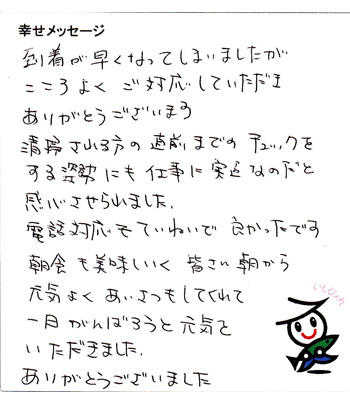 幸せメッセージ
到着が早くなってしまいましたが
こころよく ご対応していただき
ありがとうございます
清掃される方の直前までのチェックを
する姿勢にも仕事に実直なのだと
感心させられました。
電話対応もていねいで 良かったです
朝食も美味しく 皆さい朝から
元気よく あいさつもしてくれて
一日がんばろうと元気を
いただきました。
ありがとうございました